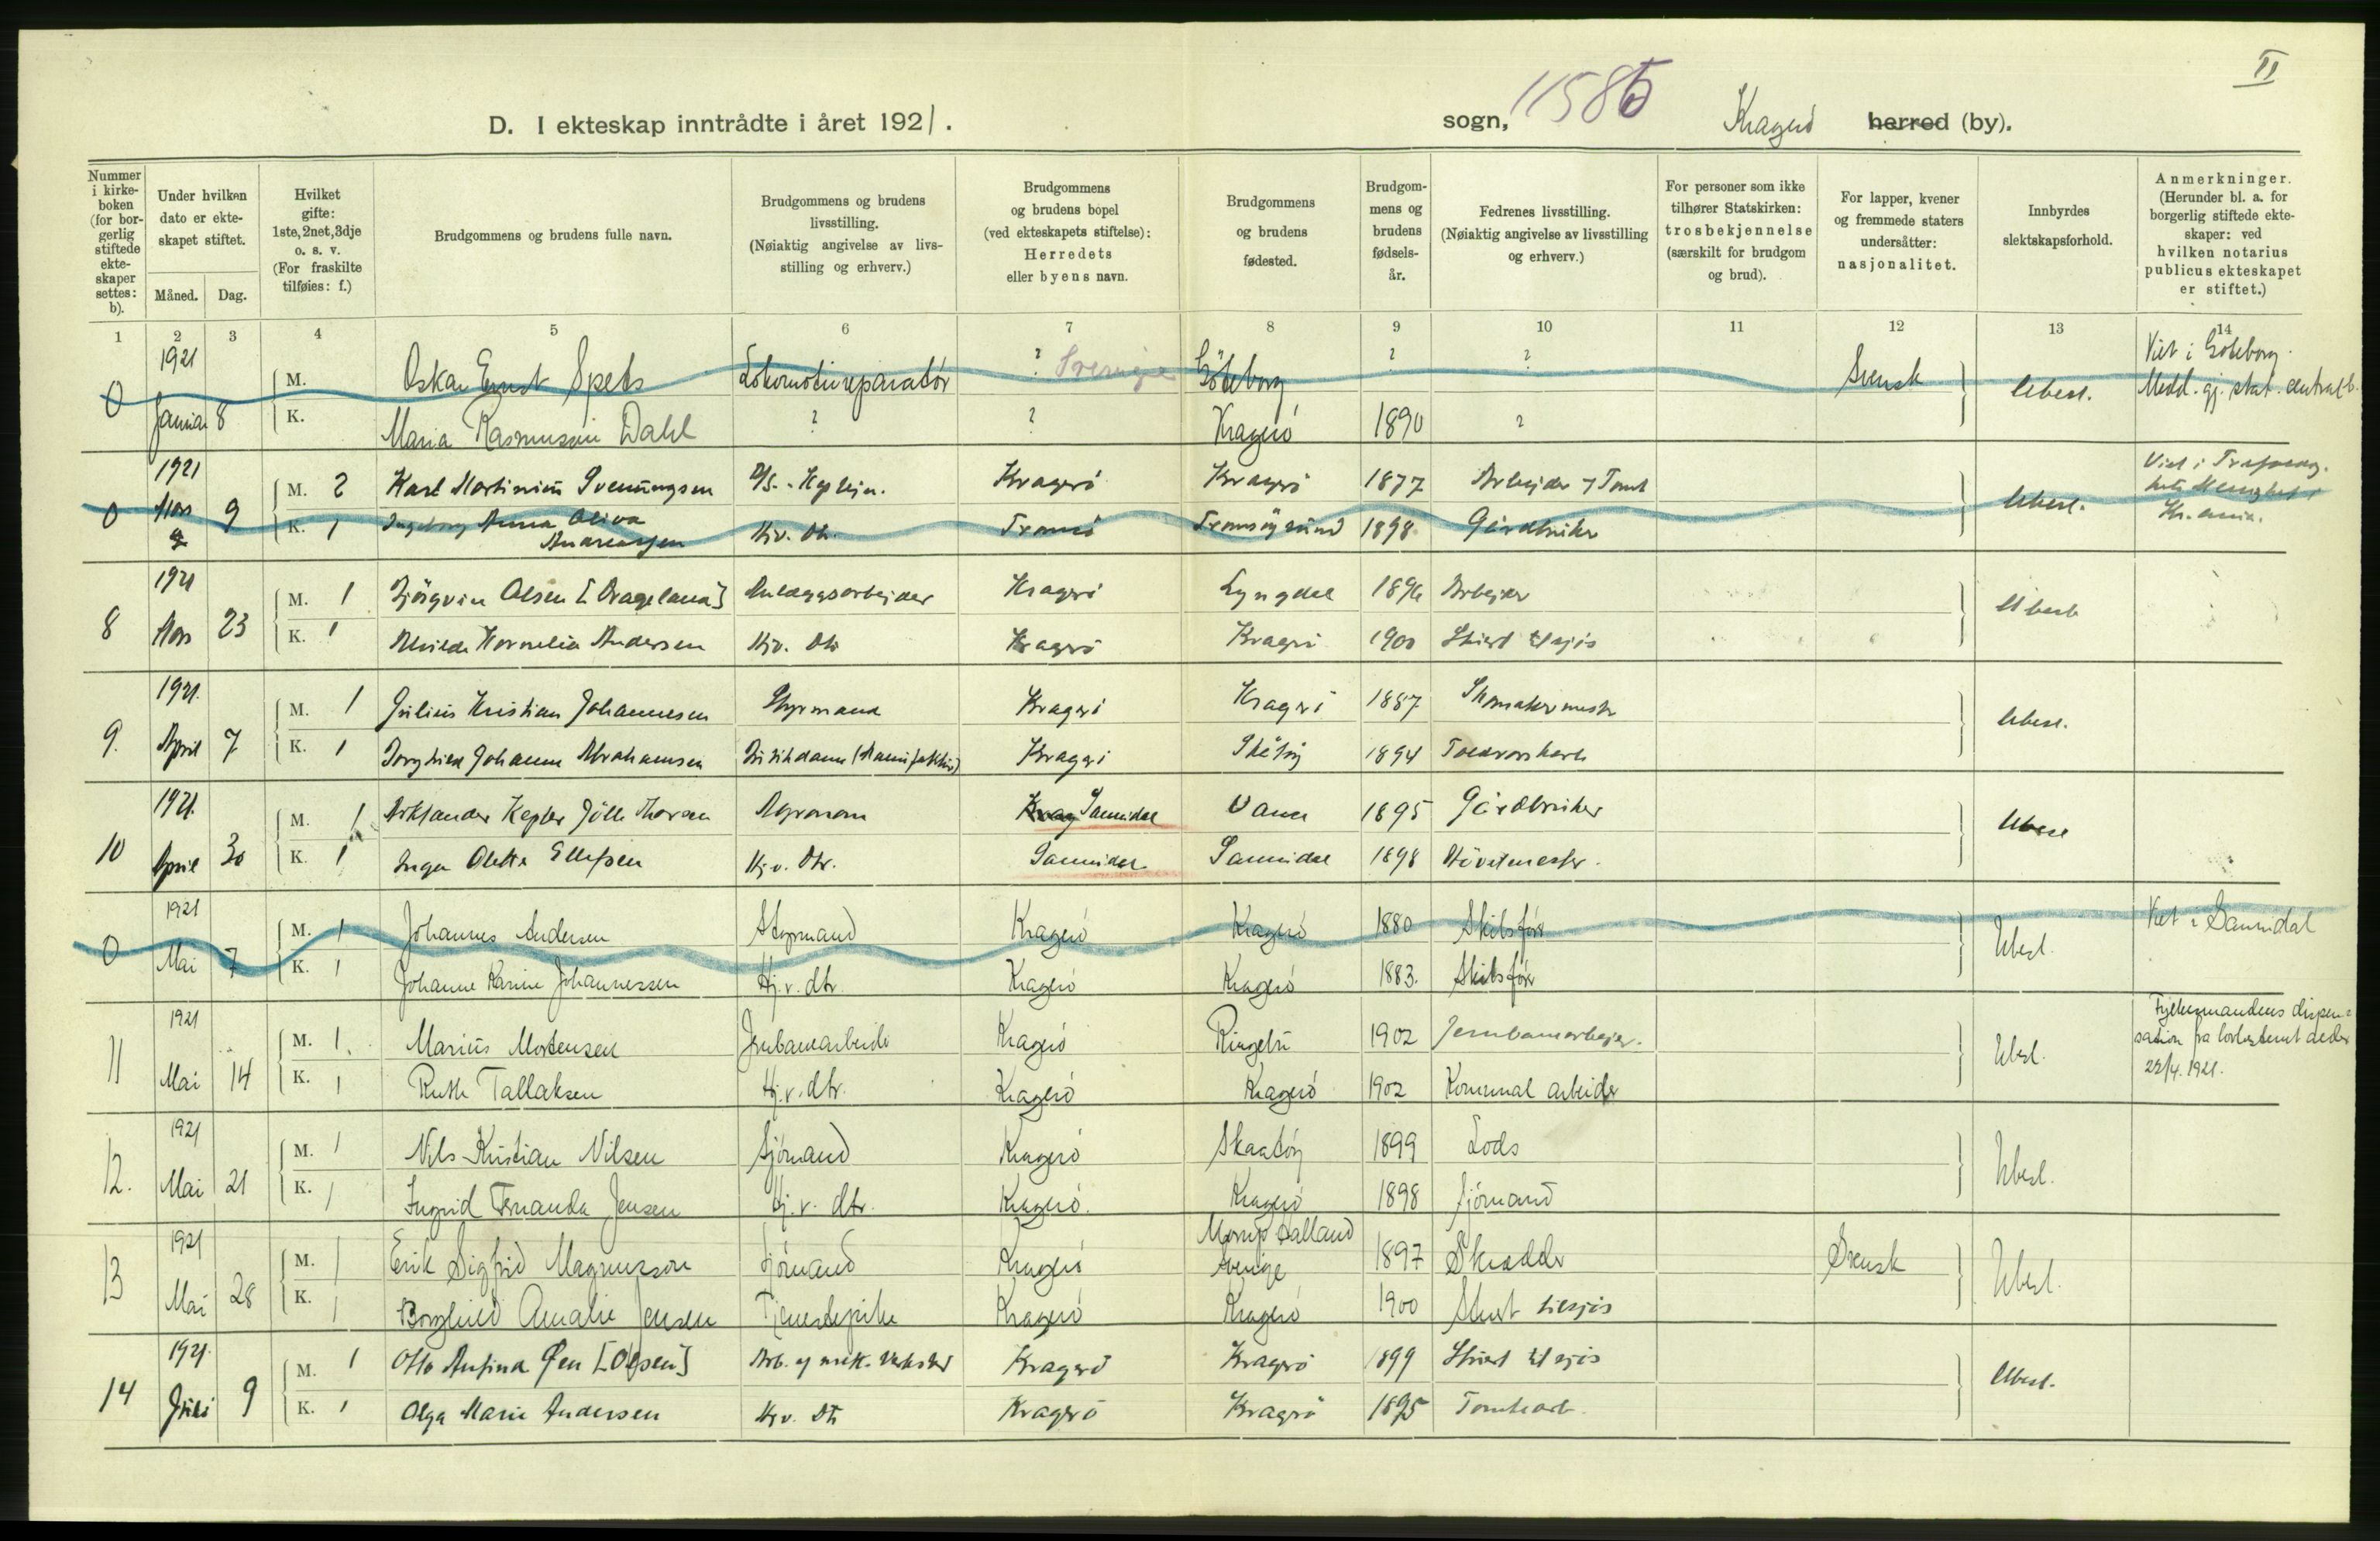 II
D. I ekteskap inntrådte i året 1921.
sogn, 11585 Kragerö herred (by).
Nummer i kirke-boken (for bor-gerlig stiftede ekte-skaper settes: b).
Under hvilken dato er ekte-skapet stiftet.
Måned. Dag.
Hvilket gifte: 1ste, 2net, 3dje o. s. v. (For fraskilte tilføies: f.)
Brudgommens og brudens fulle navn.
Brudgommens og brudens livsstilling. (Nøiaktig angivelse av livs-stilling og erhverv.)
Brudgommens og brudens bopel (ved ekteskapets stiftelse): Herredets eller byens navn.
Brudgommens og brudens fødested.
Brudgom-mens og brudens fødsels-år.
Fedrenes livsstilling. (Nøiaktig angivelse av livsstilling og erhverv.)
For personer som ikke tilhører Statskirken: trosbekjennelse (særskilt for brudgom og brud).
For lapper, kvener og fremmede staters undersåtter: nasjonalitet.
Innbyrdes slektskapsforhold.
Anmerkninger. (Herunder bl. a. for borgerlig stiftede ekte-skaper: ved hvilken notarius publicus ekteskapet er stiftet.)
1 2 3 4 5 6 7 8 9 10 11 12 13 14
0 1921 Januar 8 M. Oskar Ernst Spets Lokomotivreparatör ? Sverige Göteborg ? ? Svensk Ubesl. Viet i Göteborg. Medd. gj. stat. centralb.
K. Maria Rasmussen Dahl ? ? Kragerö 1890 ?
0 1921 Mars 9 M. 2 Karl Martinius Svenningsen Kragerö Kragerö 1877 Arbejder Ubesl. Viet i
K. 1 Ingeborg Anna Oliva Andreassen Hjv. Dtr. Tromsö Tromsösund 1898 Gårdbruker
8 1921 Mars 23 M. 1 Björgvin Olsen [Drageland] Anlægsarbejder Kragerö Lyngdal 1896 Arbejder Ubesl.
K. 1 Alvilde Kornelia Andersen Hjv. Dtr Kragerö Kragerö 1900 Skibst tilsjös
9. 1921. April 7 M. 1 Julius Kristian Johannesen Styrmand Kragerö Kragerö 1887 Skomakermester Ubesl.
K. 1 Borghild Johanne Abrahamsen Butikdame (Manufaktur) Kragerö Skåtöy 1894 Toldvorskarl
10 1921. April 30 M. 1 Kepler Thorsen Agronom Krag Sannidal Vanse 1895 Gårdbruker Ubesl
K. 1 Inga Oletta Ellefsen Hj. v. Dtr. Sannidal Sannidal 1898
0 1921 Mai 7 M. 1 Johannes Andersen Styrmand Kragerö Kragerö 1880 Skibsför Ubesl. Viet i Sannidal
K. 1 Johanne Karine Johannessen Hj. v. dtr. Kragerö Kragerö 1883. Skibsför
11 1921 Mai 14 M. 1. Marius Mortensen Jernbanearbeide Kragerö Ringebu 1902 Jernbanearbejer. Ubesl. Fylkesmandens dispen-sation fra lovbestemt alder 22/4. 1921.
K. 1 Ruth Tallaksen Hj. v. dtr. Kragerö Kragerö 1902 Kommunal arbeider
12. 1921 Mai 21 M. 1 Nils Kristian Nilsen Sjömand Kragerö Skaatöy 1899 Lods Ubesl.
K. 1 Ingrid Fernanda Jensen Hj. v. dtr. Kragerö. Kragerö 1898 Sjömand
13 1921 Mai 28 M. 1 Erik Sigfrid Magnusson Sjömand Kragerö Morup Halland Sverige 1897 Skrædder Svensk Ubesl.
K. 1 Borghild Amalie Jensen Tjenestepike Kragerö Kragerö 1900 Skibst tilsjös
14 1921. Juni 9 M. 1 Otto Anfind Øen [Olsen] Arb. v. mek. Verksted Kragerö Kragerö 1899 Skibst tilsjös Ubesl.
K. 1 Olga Marie Andersen Hjv. Dtr Kragerö Kragerö 1895 Tomtearb.